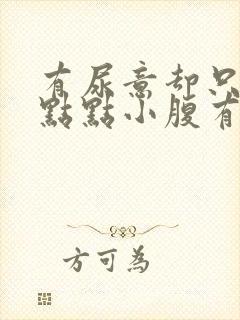 有尿意却只
點點小腹有
方可為